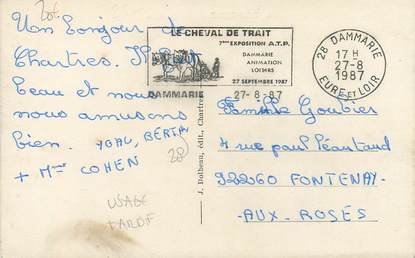 20F
Un bonjour de
Chartres. Il fait
beau et nous
nous amusons
bien. YGAL, BERTHY
+ Mme COHEN
28
USAGE
TARDIF
LE CHEVAL DE TRAIT
7ème EXPOSITION A.T.P.
DAMMARIE
ANIMATION
LOISIRS
27 SEPTEMBRE 1987
DAMMARIE 27-8-87
28 DAMMARIE
17 H
27-8
1987
EURE ET LOIR
J. Dolbeau, édit., Chartres
Famille Goubier
4 rue paul Péautaud
92260 FONTENAY-
AUX-ROSES